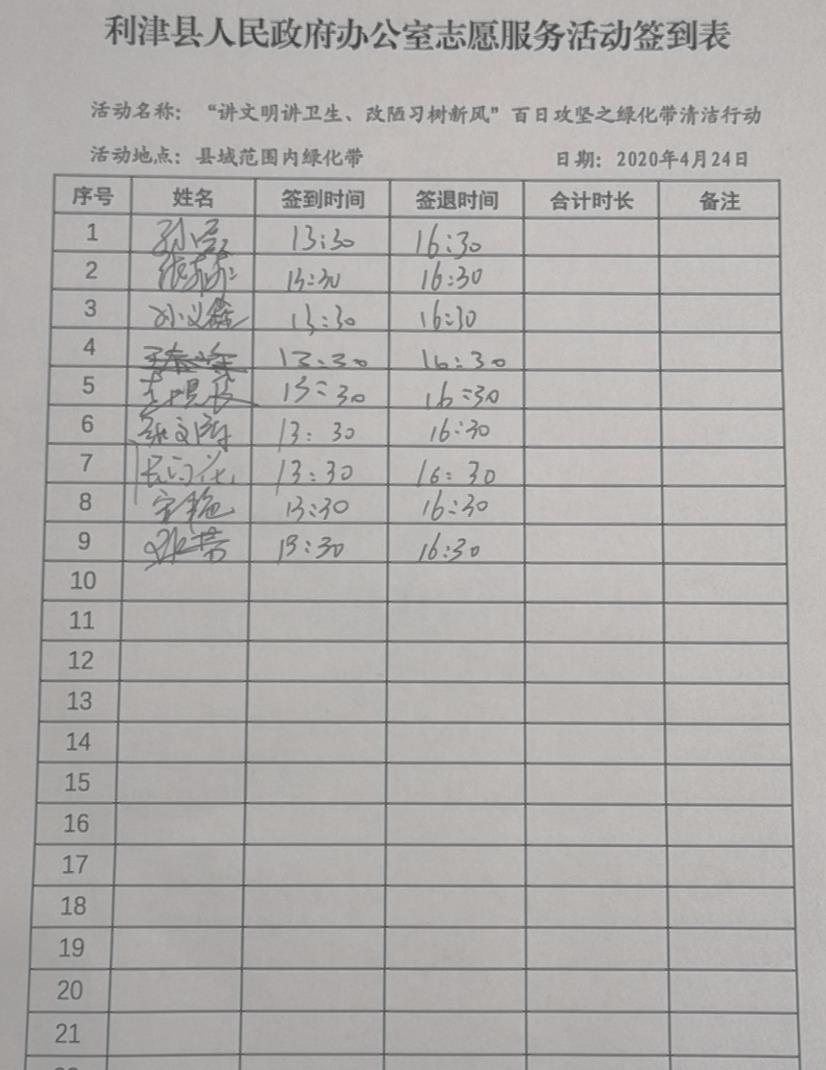 利津县人民政府办公室志愿服务活动签到表
活动名称：“讲文明讲卫生、改陋习树新风”百日攻坚之绿化带清洁行动
活动地点：县域范围内绿化带 日期：2020年4月24日
序号 姓名 签到时间 签退时间 合计时长 备注
1 13:30 16:30
2 13:30 16:30
3 13:30 16:30
4 13:30 16:30
5 13:30 16:30
6 13:30 16:30
7 13:30 16:30
8 13:30 16:30
9 13:30 16:30
10
11
12
13
14
15
16
17
18
19
20
21